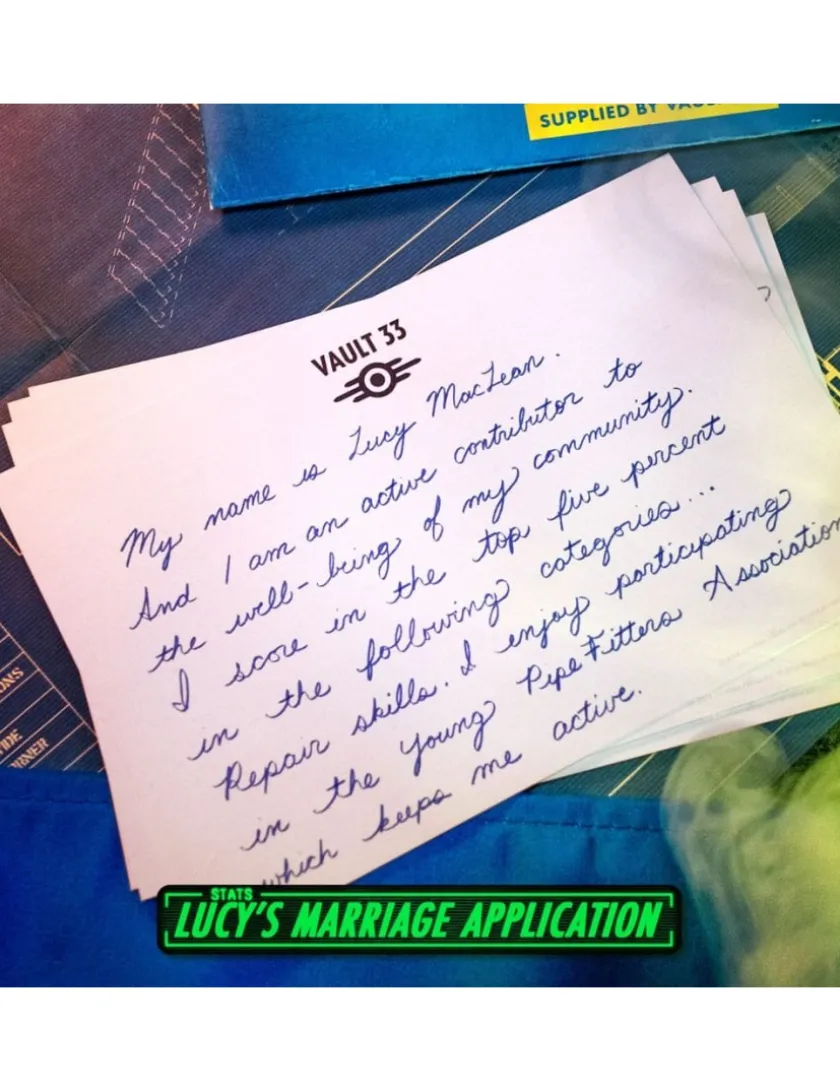 SUPPLIED BY
VAULT 33
My name is Lucy MacLean.
And I am an active contributor to
the well-being of my community.
I score in the top five percent
in the following categories...
Repair skills. I enjoy participating
in the young Pipe Fitters Association
which keeps me active.
STATS
LUCY'S MARRIAGE APPLICATION